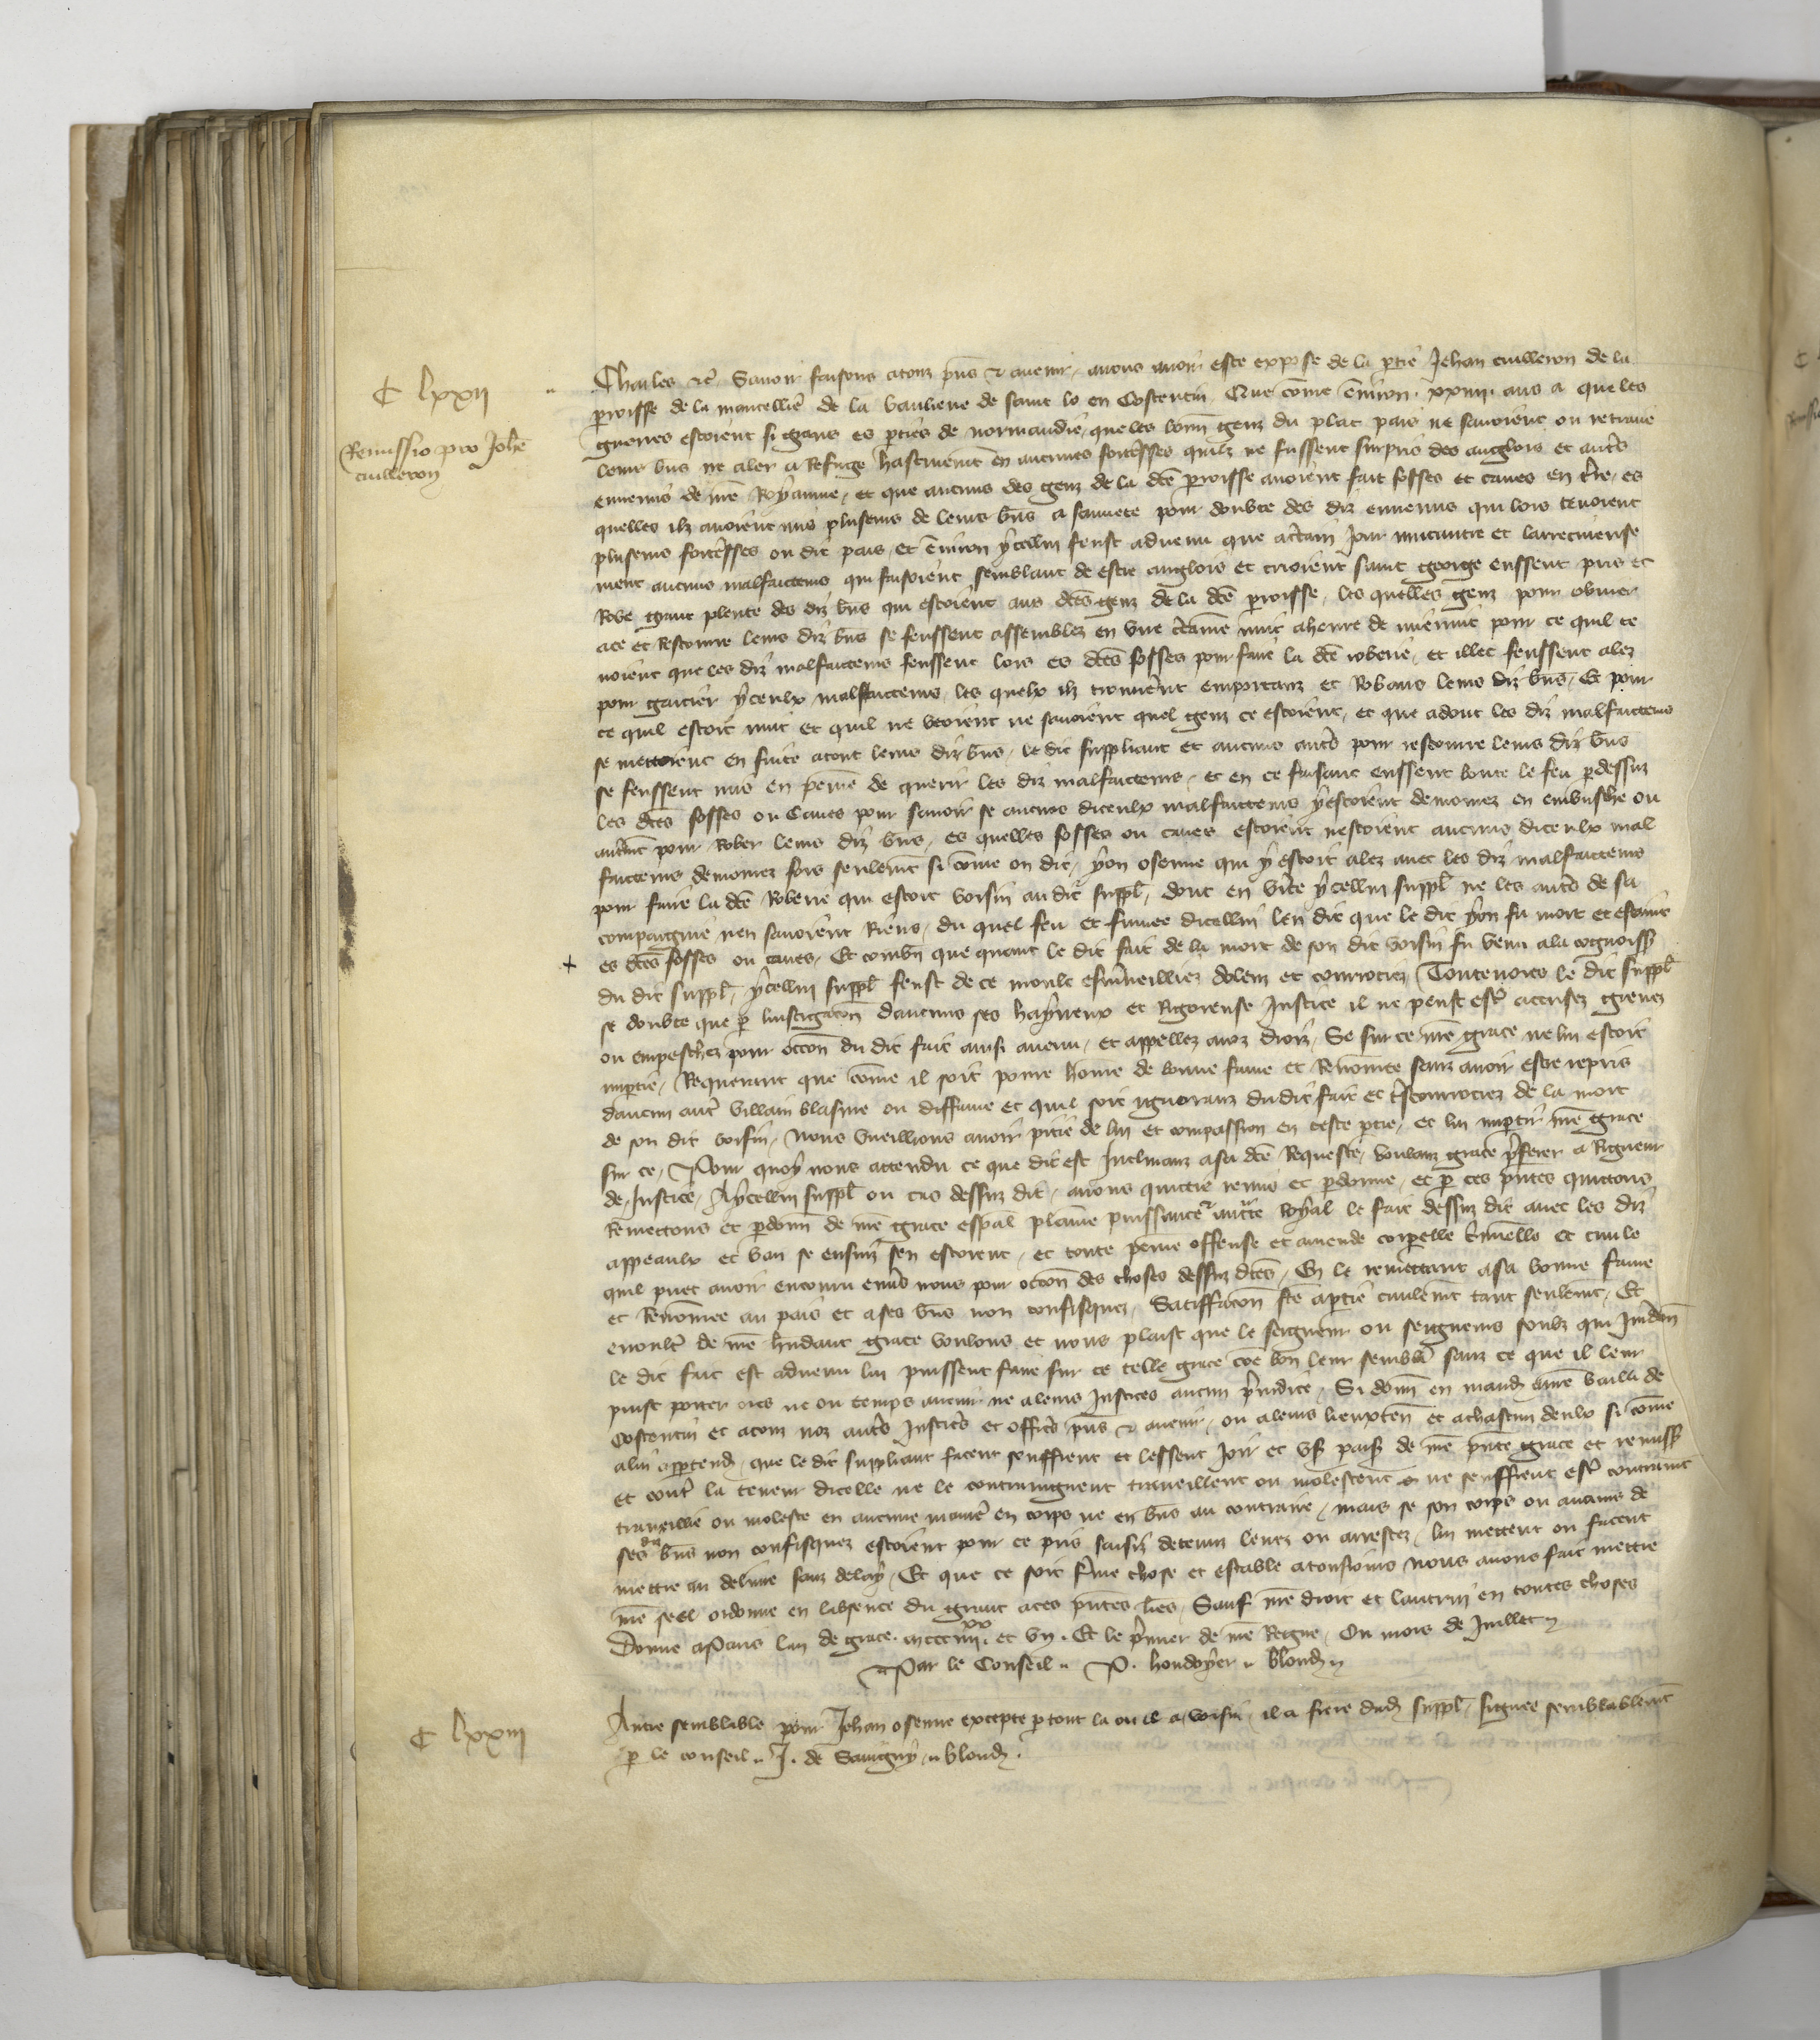 C lxxii
Remissio pro Johe
cuilleron
Charles etc. Savoir faisons a touz pns et avenir, a nous avoir este expose de la ptie Jehan cuilleron de la
proisse de la mancelliere de la banlieue de saint lo en Costentin Que come environ xxiiii ans a que les
guerres estoient si grans es pties de normandie, que les bonn genz du plat pais ne savoient ou retraire
leurs bns ne aler a Refuge hastivemt en aucunes fortesses quilz ne fussent surpris des anglois et autres
ennemis de nre Royaume, et que aucuns des genz de la dce proisse avoient fait fosses et caves en tre, es
quelles ilz avoient mis plusieurs de leurs bns a sauvete pour doubte des diz ennemis qui lors tenoient
plusieurs fortesses ou dit pais, et environ ycellui feust advenu que certain jour nuitantre et larrecineuse
ment aucuns malfaicteurs qui faisoient semblant de estre anglois et crioient saint george eussent pris et
Robe grant plente des diz bns qui estoient aus dces genz de la dce proisse, les quelles genz pour obvier
a ce et Rescourre leurs diz bns se feussent assemblez en une certaine nuit a heure de mienuit pour ce quil te
noient que les diz malfaicteurs feussent lors es dces fosses pour faire la dce roberie, et illec feussent alez
pour gaitier yceulx malfaicteurs, les quelx ilz trouverent emportanz et Robans leurs diz bns, Et pour
ce quil estoit nuit et quil ne veoient ne savoient quel genz ce estoient, et que adont les diz malfaicteurs
se mettoient en fuite a tout leurs diz bns, le dit suppliant et aucuns autres pour rescourre leurs diz bns
se feussent mis en peine de querir les diz malfaicteurs, et en ce faisant eussent boute le feu p dessuz
les dces fosses ou Caves pour savoir se aucuns diceulx malfaicteurs y estoient demourez en embusche ou
autremt pour Rober leurs diz bns, es quelles fosses ou caves estoient nestoient aucuns diceulx mal
faicteurs demourez fors seulemt si come on dit, yon osenne qui y estoit alez avec les diz malfaicteurs
pour faire la dce Roberie qui estoit voisin au dit suppl, dont en verite ycellui suppl ne les autres de sa
compaignie nen savoient Riens, du quel feu et fumee dicellui len dit que le dit yon fu mort et estaint
es dces fosses ou caves, Et combn que quant le dit fait de la mort de son dit voisin fu venu a la cognoiss
du dit suppl, ycellui suppl feust de ce moult esmerveilliez dolenz et courrociez Toutevoies le dit suppl
se doubte que p linstigacon daucuns ses hayneux et Rigoreuse Justice il ne peust estre accusez grevez
ou empeschez pour occon du dit fait ainsi avenu, et appellez a noz droiz, Se sur ce nre grace ne lui estoit
imptie, Requerant que come il soit poure home de bonne fame et Renomee sanz avoir este repris
daucun autre villain blasme ou diffame et quil soit ignoranz du dit fait et tscourrociez de la mort
de son dit voisin, nous vueillions avoir pitie de lui et compassion en ceste ptie, et lui imptir nre grace
sur ce, Pour quoy nous attendu ce que dit est Inclinanz a sa dce Requeste, voulanz grace preferer a Rigueur
de Justice, A ycellui suppl ou cas dessuz dit, avons quittie remis et pdonne, et p ces pntes quittons
Remettons et pdonn de nre grace espal plaine puissance et auctte Royal le fait dessuz dit avec les diz
appeaulx et ban se ensuiz sen estoient, et toute peine offense et amende corpelle criminelle et civile
quil puet avoir encouru envers nous pour occon des choses dessuz dces, En le remettant a sa bonne fame
et Renomee au pais et a ses bns non confisquez, Satiffacon fte a ptie civilemt tant seulemt, Et
en oultre de nre habundant grace voulons et nous plaist que le seigneur ou seigneurs soubz qui Juridon
le dit fait est advenu lui puissent faire sur ce telle grace coe bon leur semblera sanz ce que il leur
puist porter ores ne ou temps avenir ne a leurs Justices aucun preiudice, Si donn en mand au nre bailli de
Costentin et a touz noz autres Justics et offics pns et avenir, ou a leurs lieuxten et a chascun deulx si come
a lui apptend, que le dit suppliant facent seuffrent et lessent Joir et user paisz de nre pnte grace et remiss
et contre la teneur dicelle ne le contraingnent traveillent ou molestent ne seuffrent estre contraint
traveille ou moleste en aucune maniere en corps ne en bns au contraire, mais se son corps ou aucuns de
ses diz bns non confisquez estoient pour ce pris saisiz detenuz levez ou arrestez, lui mettent ou facent
mettre au delivre sanz delay, Et que ce soit ferme chose et estable a tousiours nous avons fait mettre
nre seel ordonne en labsence du grant a ces pntes lres, Sauf nre droit et lautrui en toutes choses
Donne a Paris lan de grace. mccc iiii xx. et un. Et le premier de nre Regne, Ou mois de Juillet
Par le Conseil. P. houdoyer. blond.
C lxxiii
Autre semblable pour Jehan osenne excepte ptout la ou il a voisin, il a frere dud suppl, signee semblablemt
p le conseil. J. de Savigny. blond.